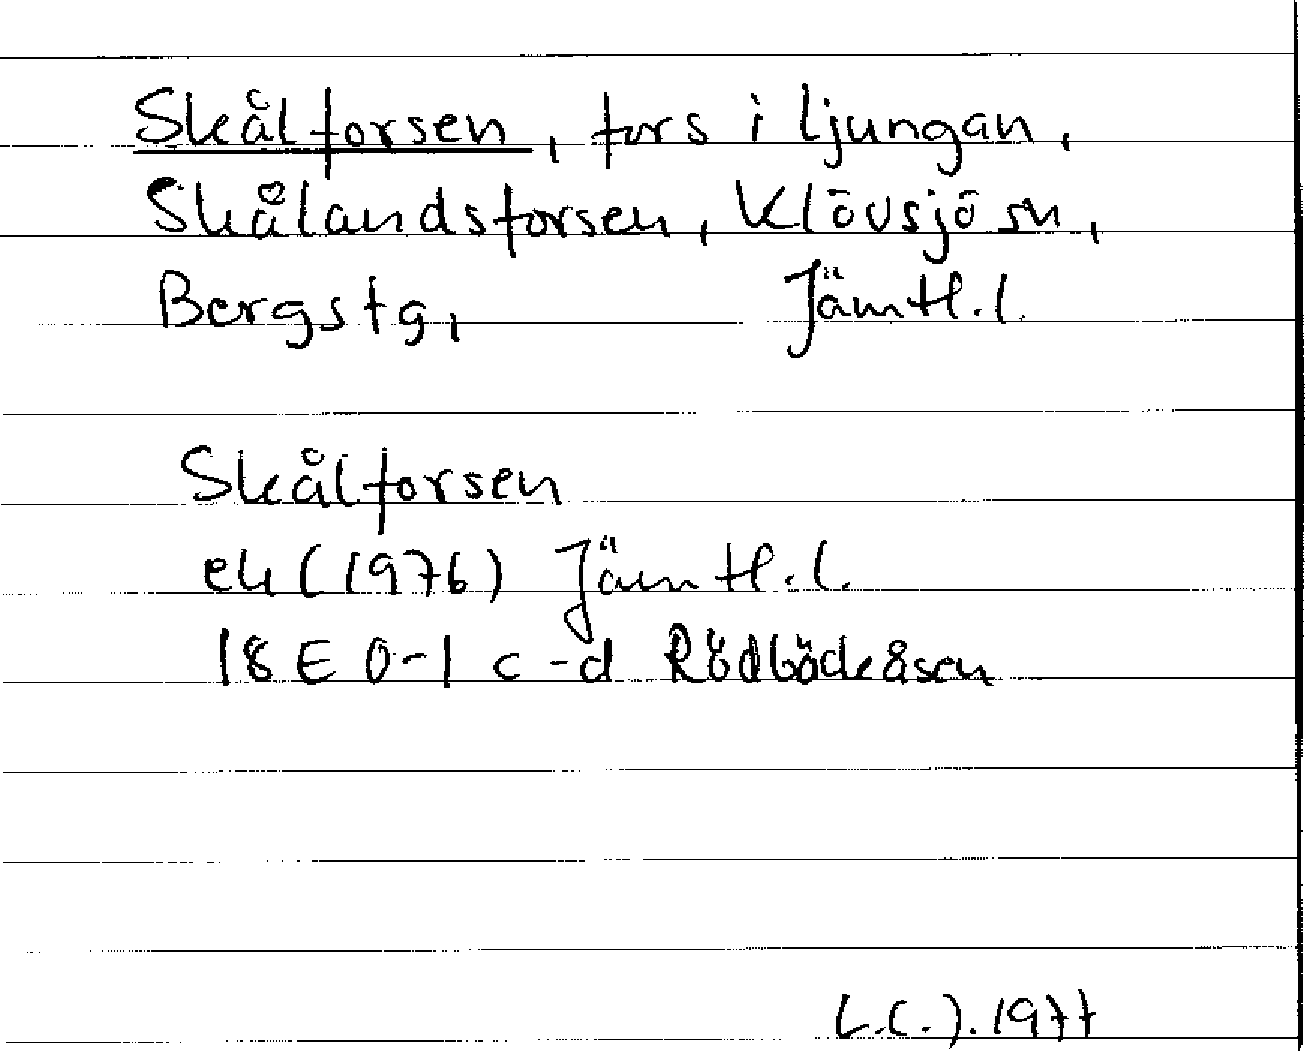 Skålforsen, fors i Ljungan,
Skålandsforsen, Klövsjö sn,
Bergs tg, Jämtl. l.
Skålforsen
ek (1976) Jämtl. l.
18 E 0-1 c-d Rödbödeåsen
L.C.J. 1977